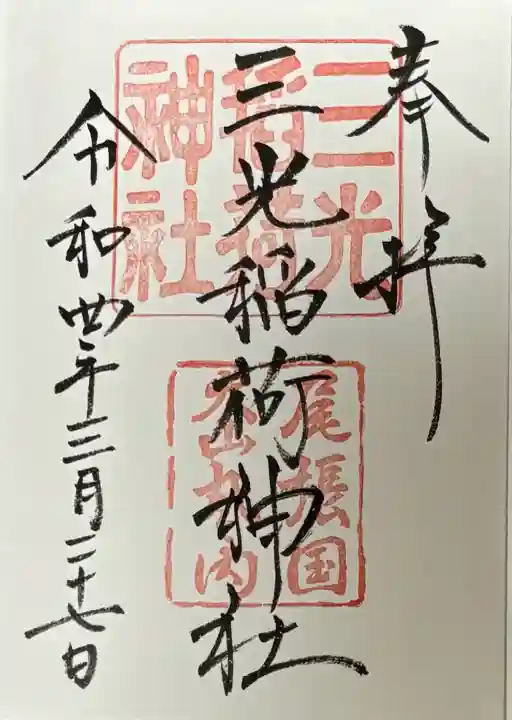 奉拝
三光稲荷神社
令和四年三月二十七日
三光
稲荷
神社
尾張国
犬山城内